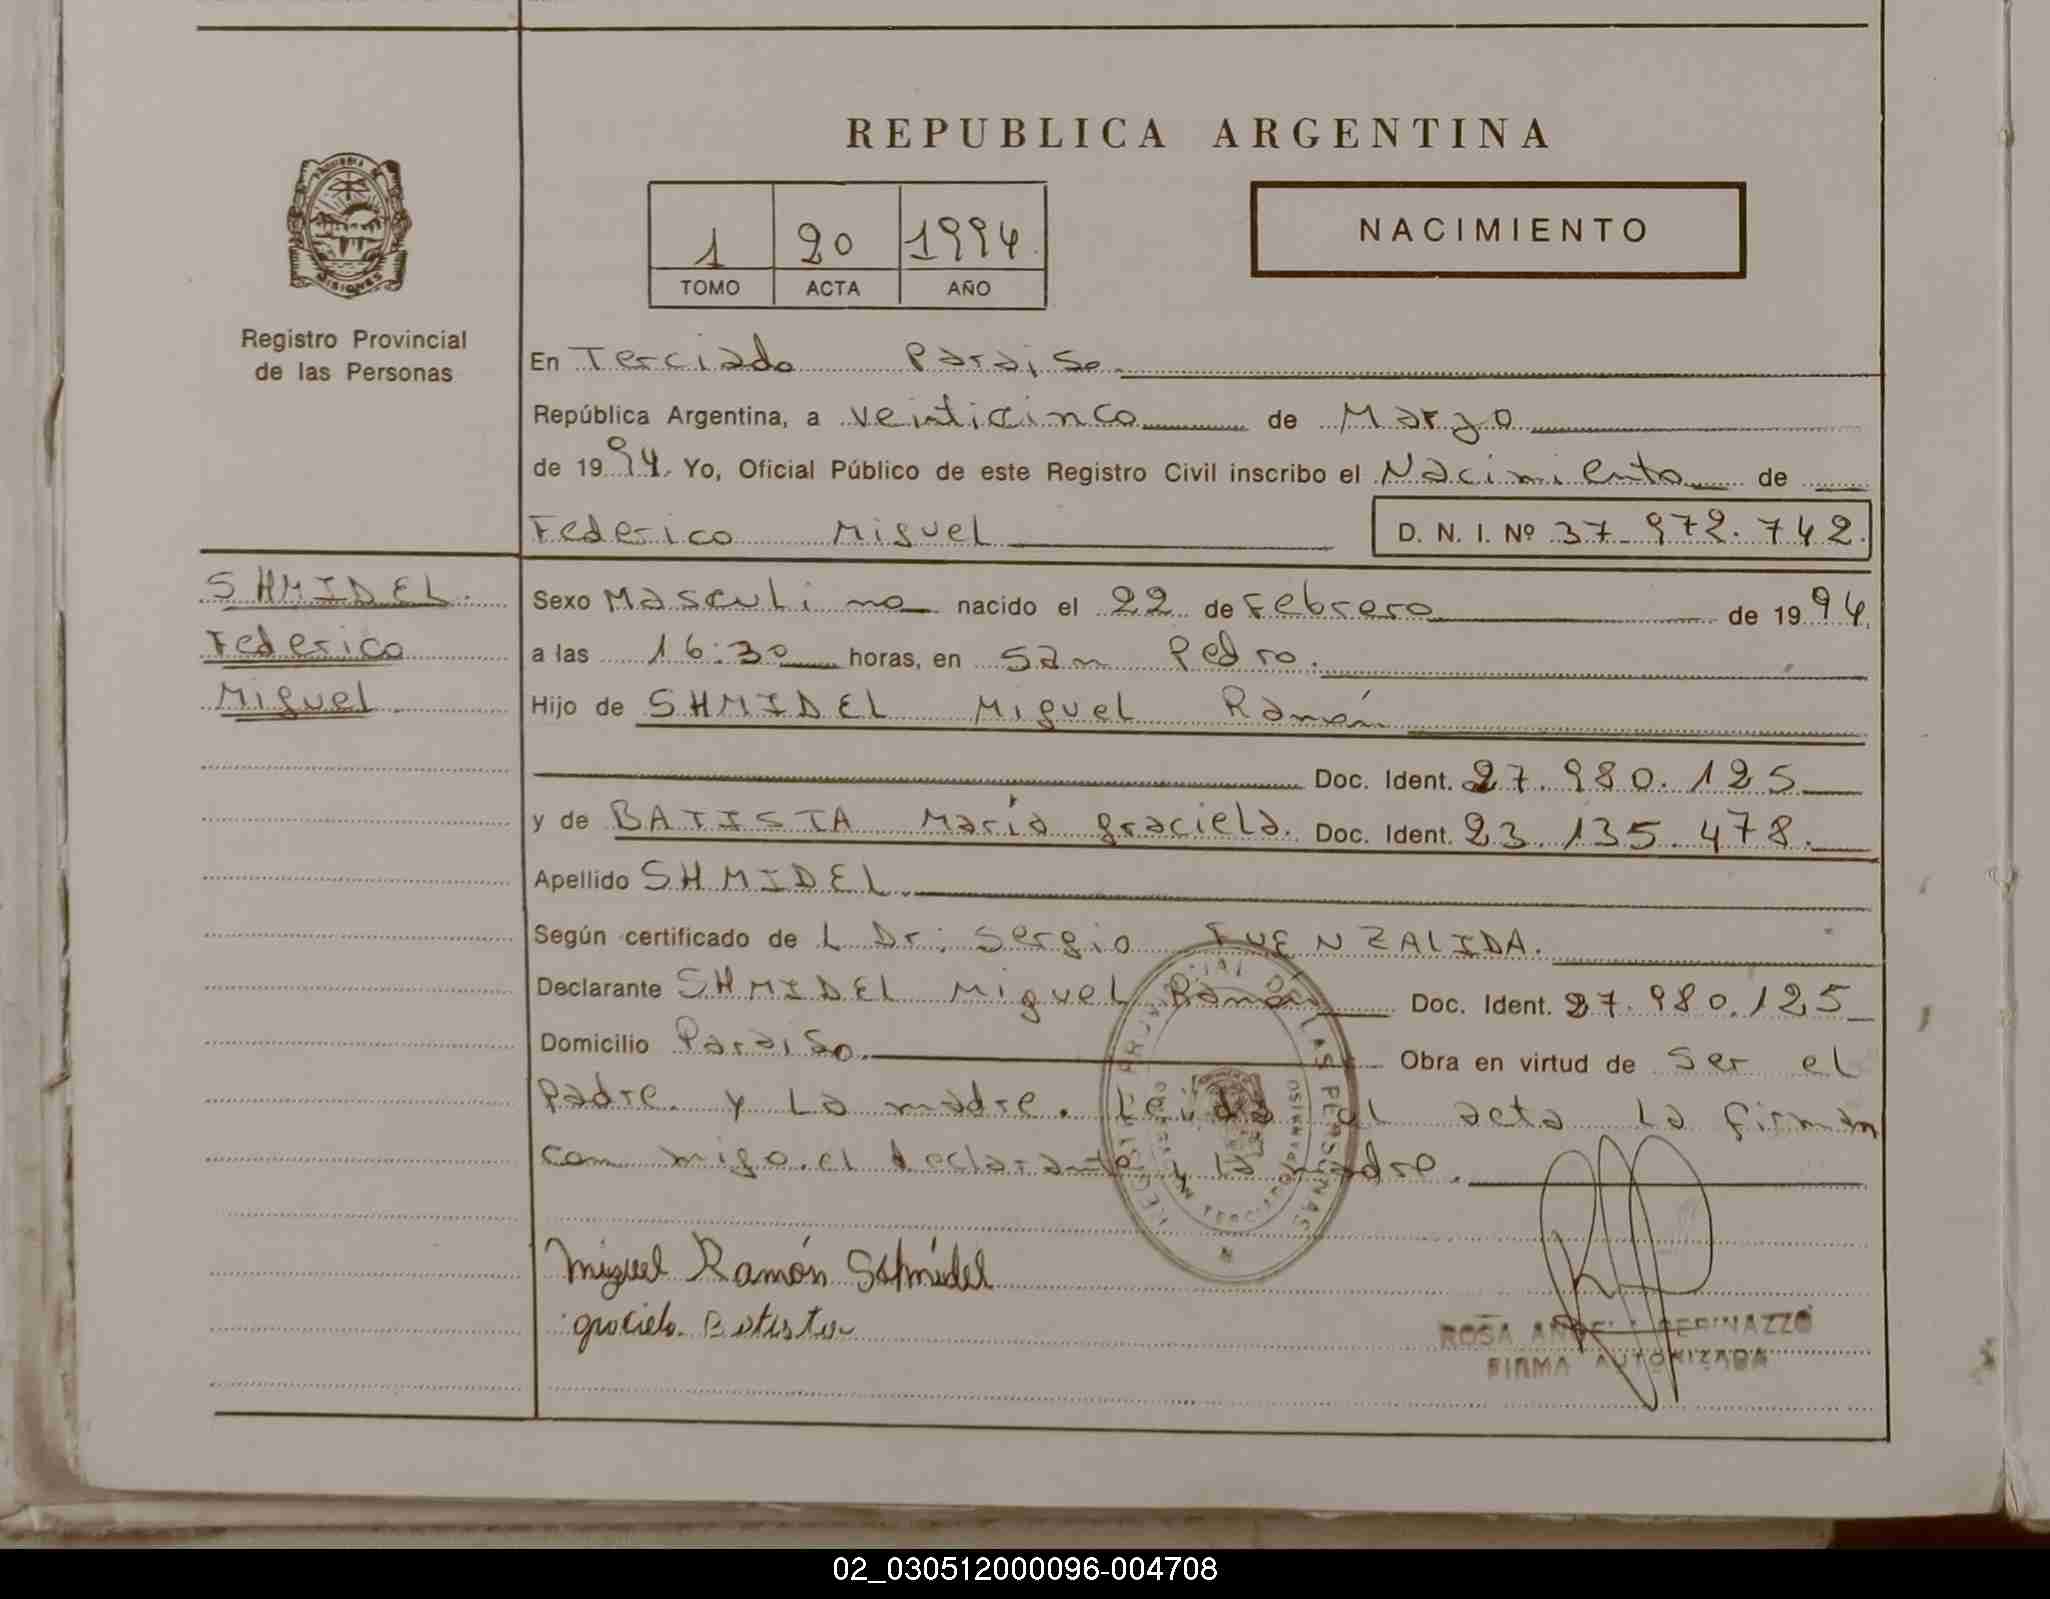 REPUBLICA ARGENTINA
MISIONES
Registro Provincial
de las Personas
1 20 1994
TOMO ACTA AÑO
NACIMIENTO
En Terciado Paraiso.
República Argentina, a veinticinco de Marzo
de 1994. Yo, Oficial Público de este Registro Civil inscribo el Nacimiento de
Federico Miguel D. N. I. Nº 37.972.742.
SHMIDEL.
Federico
Miguel.
Sexo Masculino nacido el 22 de Febrero de 1994.
a las 16:30 horas, en San Pedro.
Hijo de SHMIDEL Miguel Ramón
Doc. Ident. 27.980.125
y de BATISTA María graciela. Doc. Ident. 23.135.478.
Apellido SHMIDEL.
Según certificado de L Dr: Sergio FUENZALIDA.
Declarante SHMIDEL Miguel Ramón Doc. Ident. 27.980.125
Domicilio Paraiso. Obra en virtud de ser el
padre y La madre. Leida el acta La firman
con migo el declarante y la madre.
REGISTRO PROVINCIAL DE LAS PERSONAS
TERCIADO PARAISO
Miguel Ramón Schmidel
graciela Batista
ROSA
FIRMA AUTORIZADA
02_030512000096-004708